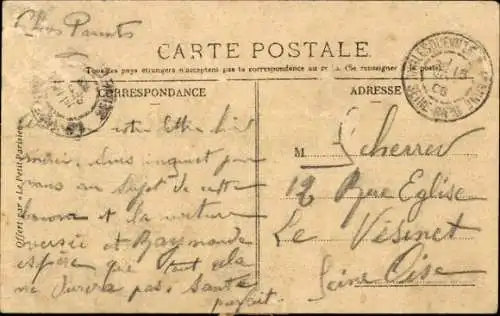 Chers Parents
CARTE POSTALE
Tous les pays étrangers n'acceptent pas la correspondance au recto. (Se renseigner à la poste).
CORRESPONDANCE
ADRESSE
Offert par « Le Petit Parisien »
votre lettre
merci, suis inquiet pour
vous au sujet de cette
et la voiture
versée et Raymonde
espère que tout cela
ne durera pas. Santé
parfait.
M. Scherrer
12 Rue Eglise
Le Vésinet
Seine Oise